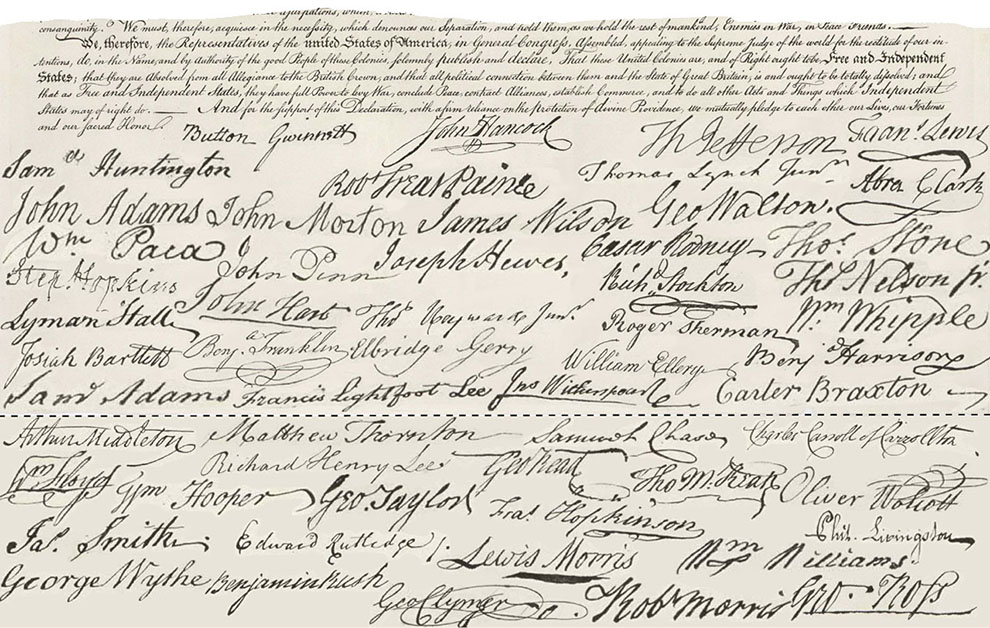 consanguinity. We must, therefore, acquiesce in the necessity, which denounces our Separation, and hold them, as we hold the rest of mankind, Enemies in War, in Peace Friends.
We, therefore, the Representatives of the united States of America, in General Congress, Assembled, appealing to the Supreme Judge of the world for the rectitude of our in-
tentions, do, in the Name, and by Authority of the good People of these Colonies, solemnly publish and declare, That these United Colonies are, and of Right ought to be Free and Independent
States; that they are Absolved from all Allegiance to the British Crown, and that all political connection between them and the State of Great Britain, is and ought to be totally dissolved; and
that as Free and Independent States, they have full Power to levy War, conclude Peace, contract Alliances, establish Commerce, and to do all other Acts and Things which Independent
States may of right do. And for the support of this Declaration, with a firm reliance on the Protection of divine Providence, we mutually pledge to each other our Lives, our Fortunes
and our sacred Honor.
Button Gwinnett John Hancock Th Jefferson Frans. Lewis
Saml Huntington Robt Treat Paine Thomas Lynch Junr. Abra Clark
John Adams John Morton James Wilson Geo Walton.
Wm Paca John Penn Joseph Hewes, Caesar Rodney Thos. Stone
Step. Hopkins John Hart Richd. Stockton Thos Nelson jr.
Lyman Hall Thos Heyward Junr. Roger Sherman Wm Whipple
Josiah Bartlett Benja. Franklin Elbridge Gerry William Ellery Benj Harrison
Saml Adams Francis Lightfoot Lee Jno Witherspoon Carter Braxton
Arthur Middleton Matthew Thornton Samuel Chase Charles Carroll of Carrollton
Wm Floyd Richard Henry Lee Geo Read Tho M:Kean Oliver Wolcott
Wm Hooper Geo. Taylor Fras. Hopkinson Phil. Livingston
Jas. Smith. Edward Rutledge /. Lewis Morris Wm Williams
George Wythe Benjamin Rush Geo Clymer Robt Morris Geo. Ross